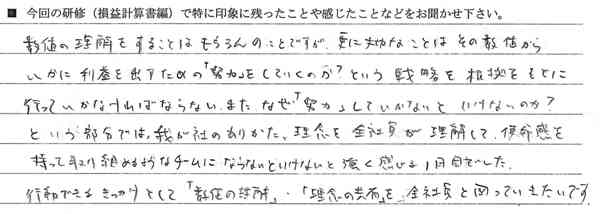 ■ 今回の研修（損益計算書編）で特に印象に残ったことや感じたことなどをお聞かせ下さい。
数値の理解をすることはもちろんのことですが、更に大切なことはその数値から
いかに利益を出すための「努力」をしていくのか？という戦略を根拠をもとに
行っていかなければならない。また、なぜ「努力」していかないといけないのか？
という部分では、我が社のありかた、理念を全社員が理解して、使命感を
持って取り組めるようなチームにならないといけないと強く感じる1日目でした。
行動できるきっかけとして「数値の理解」・「理念の共有」を全社員と図っていきたいです